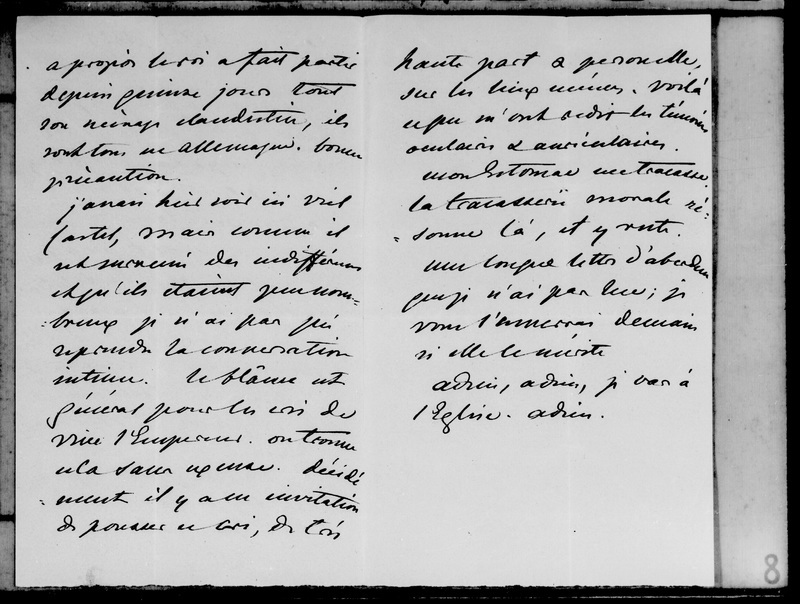 a propos le roi a fait partir
depuis quinze jours tout
son ménage clandestin, ils
sont tous en allemagne. bonne
précaution.
j'avais hier soir ici vieil
Castel, mais comme il
est survenu des indifférens
et qu'ils étaient peu nom-
:breux je n'ai pas pu
reprendre la conversation
intime. le blâme est
général pour les cris de
vive l'Empereur. on trouve
cela sans excuse. décidé
:ment il y a eu invitation
de pousser ce cri, de très
haute part & personelle,
sur les lieux mêmes. voilà
ce que m'ont redit les témoins
oculaires & auriculaires.
mon Estomac me tracasse.
la tracasserie morale ré-
:sonne là, et y reste.
une longue lettre d'aberdeen
que je n'ai pas lue; je
vous l'enverrai demain
si elle le mérite
adieu, adieu, je vais à
l'Eglise. adieu.
8